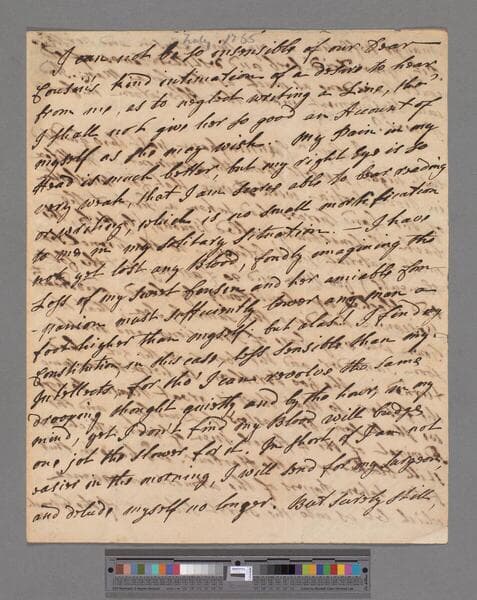 July 1765
I can not be so insensible of our Dear
Cousin's kind intimation of a desire to hear
from me, as to neglect writing a Line, tho'
I shall not give her so good an Account of
myself as she may wish. My Pain in my
Head is much better, but my right Eye is so
very weak, that I am scarce able to bear reading
or writing, which is no small mortification
to me in my solitary situation. — I have
not yet lost any Blood, fondly imagining the
Loss of my sweet Cousin and her amiable Com-
-panion must sufficiently lower any man a
foot higher than myself, but alas! I find my
Constitution, in this case, less sensible than my
Intellects, for tho' I can revolve the same
drooping thought quietly and by the hour, in my
mind, yet I don't find my Blood will budge
one jot the slower for it. In short, if I am not
easier in the morning, I will send for my Surgeon,
and delude myself no longer. But surely still,